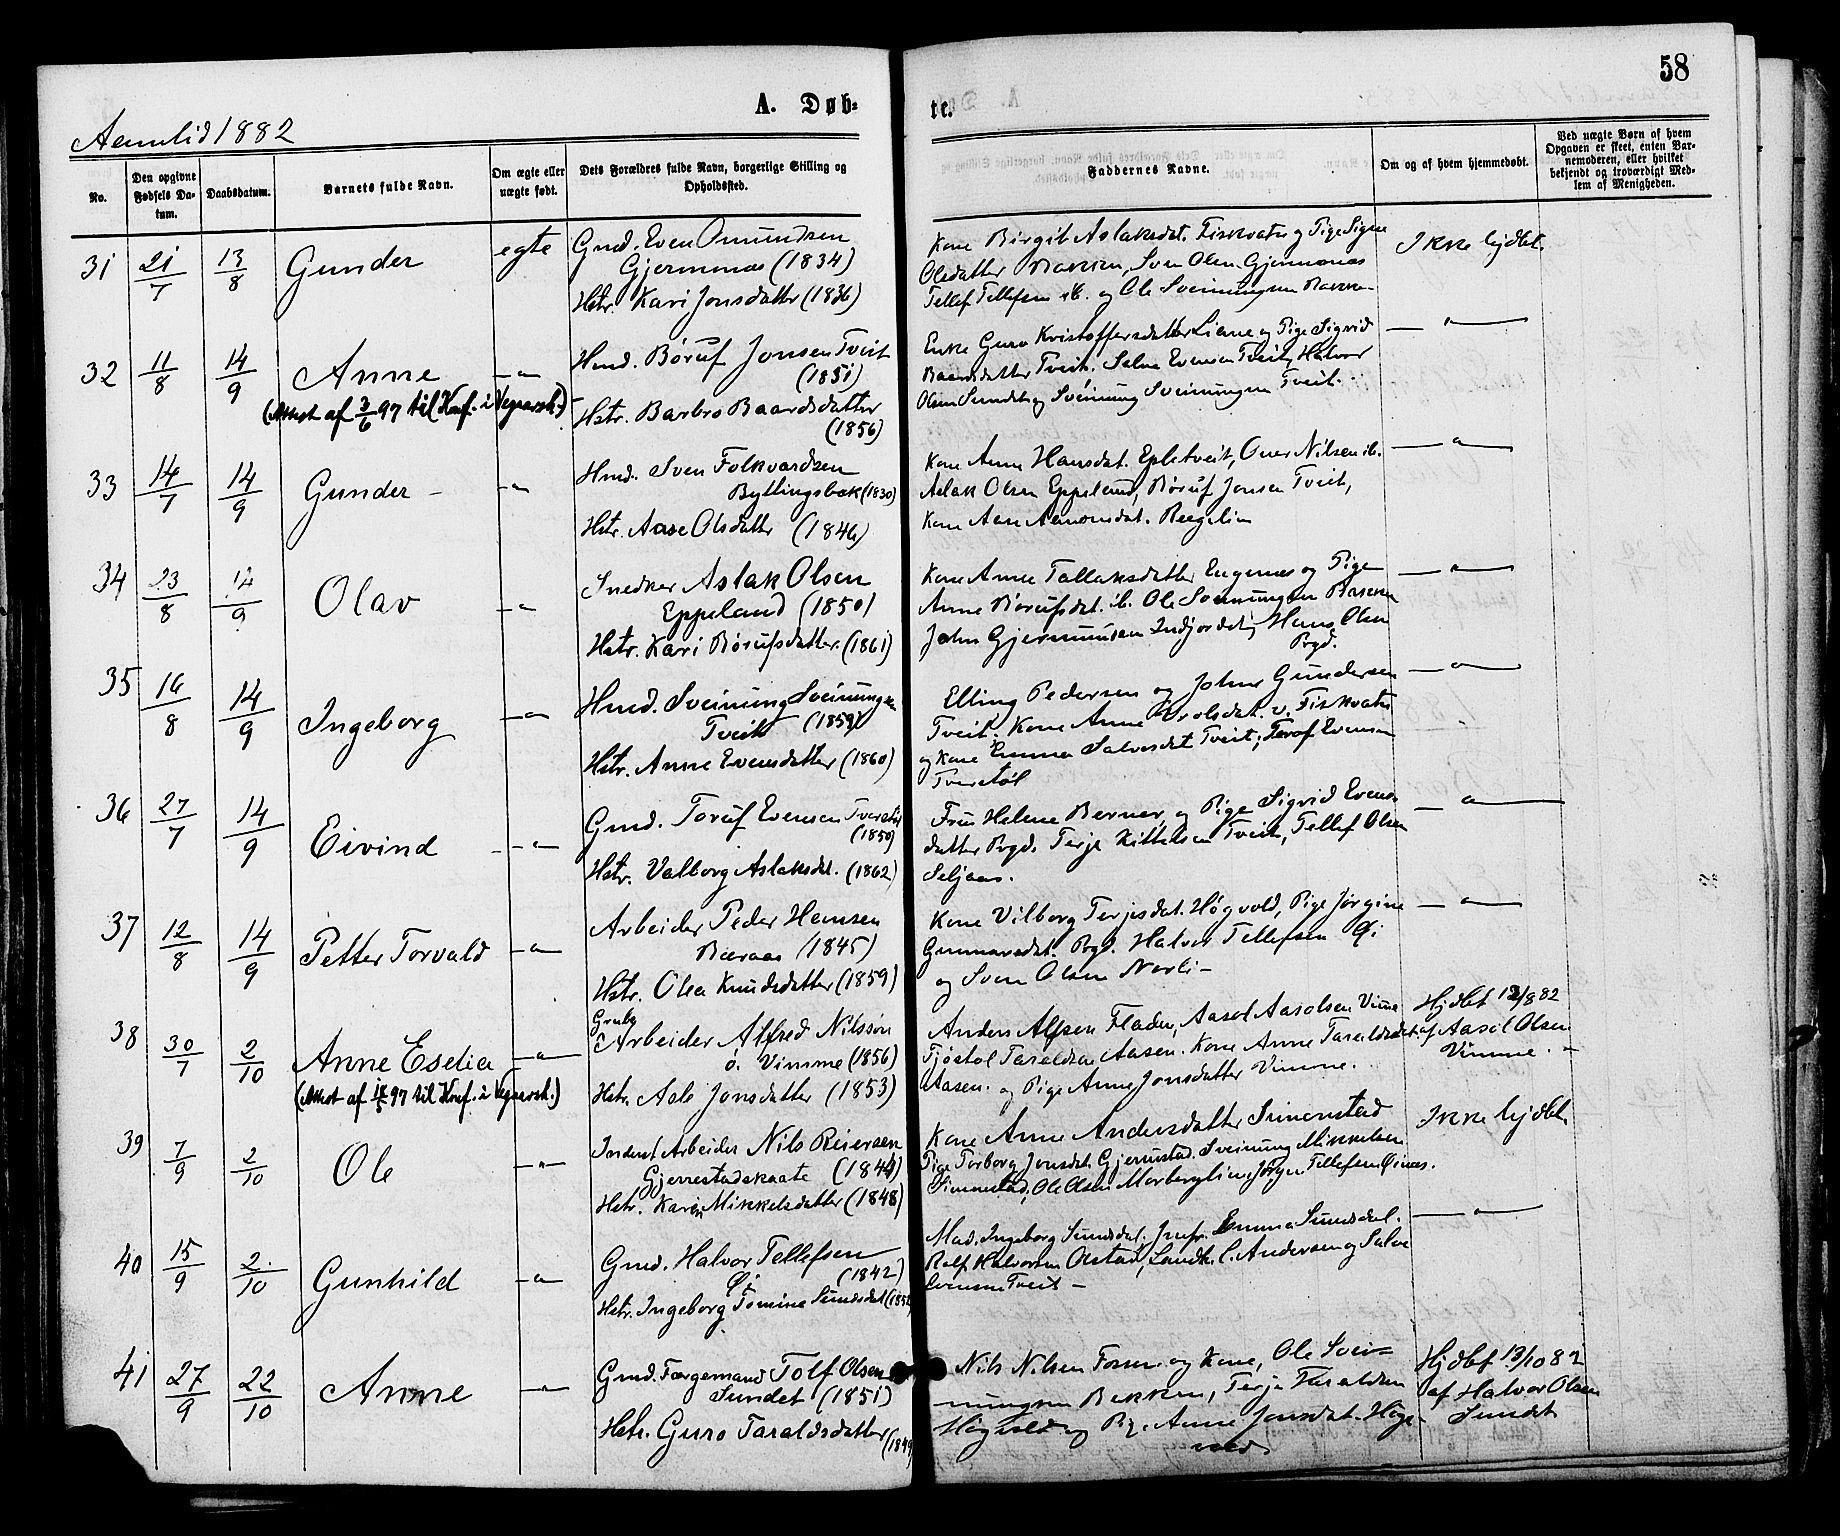 58
A. Døb-
te.
Aamlid 1882
No.
Den opgivne Fødsels Da-tum.
Daabsdatum.
Barnets fulde Navn.
Om ægte eller uægte født.
Dets Forældres fulde Navn, borgerlige Stilling og Opholdssted.
Faddernes Navne.
Om og af hvem hjemmedøbt.
Ved uægte Børn af hvem Opgaven er skeet, enten Bar-nemoderen, eller hvilket bekjendt og troværdigt Med-lem af Menigheden.
31 21/7 13/8 Gunder egte
Gmd. Even Omundsen
Gjermenæs (1834)
Hstr. Kari Jonsdatter (1836)
Kone Birgit Aslaksdat. Fiskvatn og Pige Signe
Olsdatter Bakken, Sven Olsen Gjermenæs
Tellef Tellefsen ib. og Ole Sveinungsen Bakken
Ikke hjdbt.
32 11/8 14/9 Anne -"-
(Attest af 3/6 97 til Konf. i Vegaarsh.)
Hmd. Børuf Jonsen Tveit
(1851)
Hstr. Barbro Baardsdatter
(1856)
Enke Guro Kristoffersdatter Liane og Pige Sigrid
Baardsdatter Tveit. Salve Evensen Tveit, Halvor
Olsen Sundet og Sveinung Sveinungsen Tveit.
-"-
33 14/7 14/9 Gunder -"-
Hmd. Sven Folkvardsen
Byllingsbæk (1830)
Hstr. Aase Olsdatter (1846)
Kone Anne Hansdat. Epletveit, Over Nilsen ib.
Aslak Olsen Eppeland, Børuf Jonsen Tveit,
Kone Aase Aamonsdat.
-"-
34 23/8 14/9 Olav -"-
Snedker Aslak Olsen
Eppeland (1850)
Hstr. Kari Børufsdatter. (1861)
Kone Anne Tallaksdatter Engenes og Pige
Anne Børufsdat. ib. Ole Sveinungsen Bakken
John Gjermunsen Indjordet, Hans Olsen
Bygd.
-"-
35 16/8 14/9 Ingeborg -"-
Hmd. Sveinung Sveinungsen
Tveit (1859)
Hstr. Anne Evensdatter (1860)
Elling Pedersen og Johne Gundersen
Tveit. Kone Anne v. Fiskvatn
og Kone Emma Salvesdat Tveit, Toruf Evensen
Tverstøl
-"-
36 27/7 14/9 Eivind -"-
Gmd. Toruf Evensen Tverstøl
(1850)
Hstr. Valborg Aslaksdat. (1862)
Fru Helene Berner, og Pige Sigrid Evens-
datter Bygd. Terje Kittelsen Tveit, Tellef Olsen
Seljaas.
-"-
37 12/8 14/9 Petter Torvald -"-
Arbeider Peder Hansen
Baaraas (1845)
Hstr. Olea Knudsdatter (1859)
Kone Vilborg Terjesdat. Høgvold, Pige Jørgine
Gunnarsdat. Bygd. Halvor Tellefsen Øi
og Sven Olsen Norli -
-"-
38 30/7 2/10 Anne Eselia -"-
(Attest af 97 til Konf. i Vegaarsh.)
Grube
Arbeider Alfred Nilssøn
ø. Vimme (1856)
Hstr. Asle Jonsdatter (1853)
Anders Alfsen Fladen, Aasol Aasolsen Vime
Tjøstol Taraldsen Aasen. Kone Anne Taraldsdat.
Aasen. og Pige Anne Jonsdatter Vimme.
Hjdbt 12/8 82
af Aasol Olsen
Vimme. -
39 7/9 2/10 Ole -"-
Inderst Arbeider Nils Reiersen
Gjerrestadskaate (1844)
Hstr. Karen Mikkelsdatter (1848)
Kone Anne Andersdatter Simonstad
Pige Torborg Jonsdat. Gjerrustad. Sveinung Mikkelsen
Simonstad, Ole Olsen Jørgen Tellefsen Øinæs.
Ikke hjdbt.
40 15/9 2/10 Gunhild -"-
Gmd. Halvor Tellefsen
Øi (1842)
Hstr. Ingeborg Tomine Sunsdat
Mad. Ingeborg Sunsdat. Jmfr. Emma Sunsdat.
Rolf Halvorsen Olstad, Landh. C. Andersen og Salve
Evensen Tveit -
-"-
41 27/9 22/10 Anne -"-
Gmd. Færgemand Tolf Olsen
Sundet (1851)
Hstr. Guro Taraldsdatter
(1849)
Nils Nilsen Fosse og Kone, Ole Svei-
nungsen Bakken, Terje Taraldsen
Høgvold og Pige Anne Jonsdat. Høg-
vold
Hjdbt 13/10 82
af Halvor Olsen
Sundet